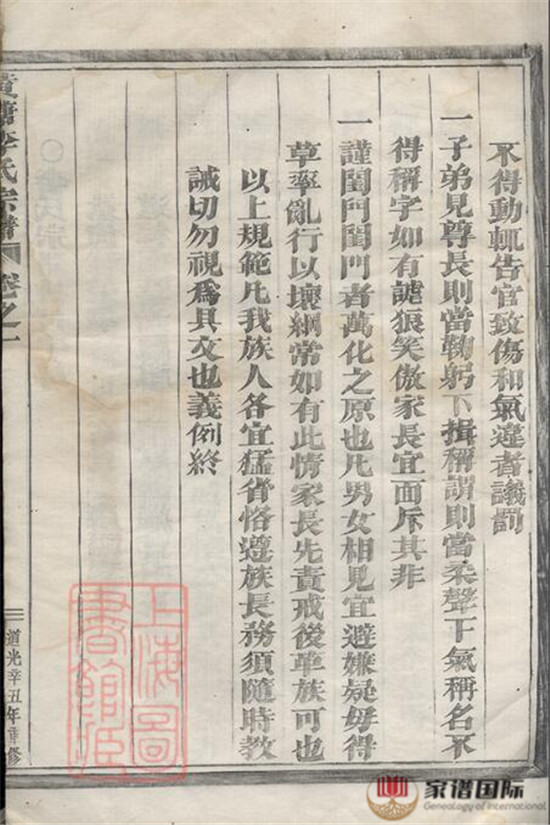 不得動輒告官致傷和氣違者議罰
一子弟見尊長則當鞠躬下揖稱謂則當柔聲下氣稱名不
得稱字如有謔狠笑傲家長宜面斥其非
一謹閨門閨門者萬化之原也凡男女相見宜避嫌疑毋得
草率亂行以壞綱常如有此情家長先責戒後革族可也
以上規範凡我族人各宜猛省恪遵族長務須隨時教
誡切勿視爲具文也義例終
李氏宗譜 卷之一
道光辛丑年重修
上海圖書館臧
家谱国际
Genealogy of International